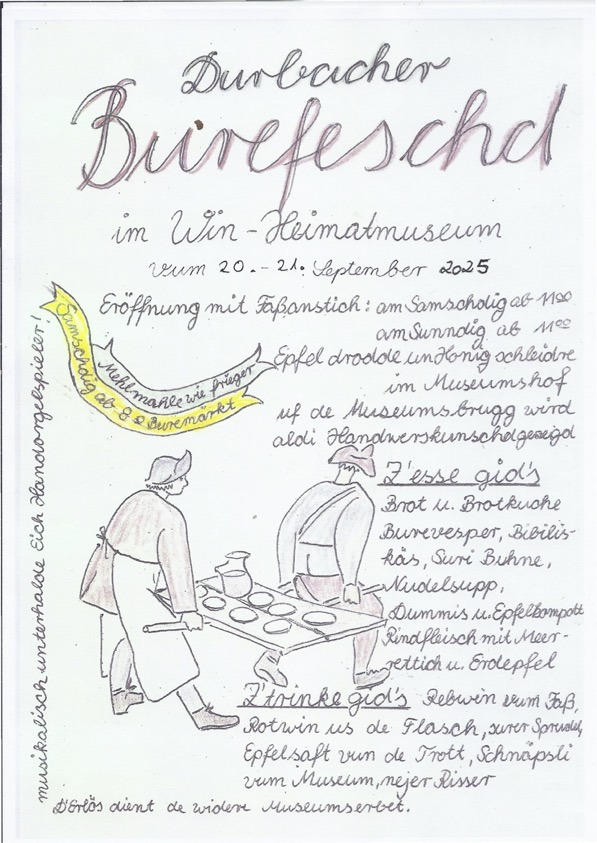 Durbacher
Burefeschd
im Win-Heimatmuseum
vum 20.-21. September 2025
Eröffnung mit Faßanstich: am Samschdig ab 11⁰⁰
am Sunndig ab 11⁰⁰
Epfel drodde un Honig schleidre
im Museumshof
uf de Museumsbrugg wird
aldi Handwerskunschd gezeigd
Mehlmahle wie frieger
Samschdig ab 8⁰⁰ Buremärkt
musikalisch unterhalde Eich Handorgelspieler!
Z'esse gid's
Brot u. Brotkuche
Burevesper, Bibilis-
käs, Suri Buhne,
Nudelsupp,
Dummis u. Epfelkompott
Rindfleisch mit Meer-
rettich u. Erdepfel
Z'trinke gid's Rebwin vum Faß,
Rotwin us de Flasch, surer Sprudel,
Epfelsaft vun de Trott, Schnäpsli
vum Museum, nejer Risser
D'Erlös dient de widere Museumserbet.